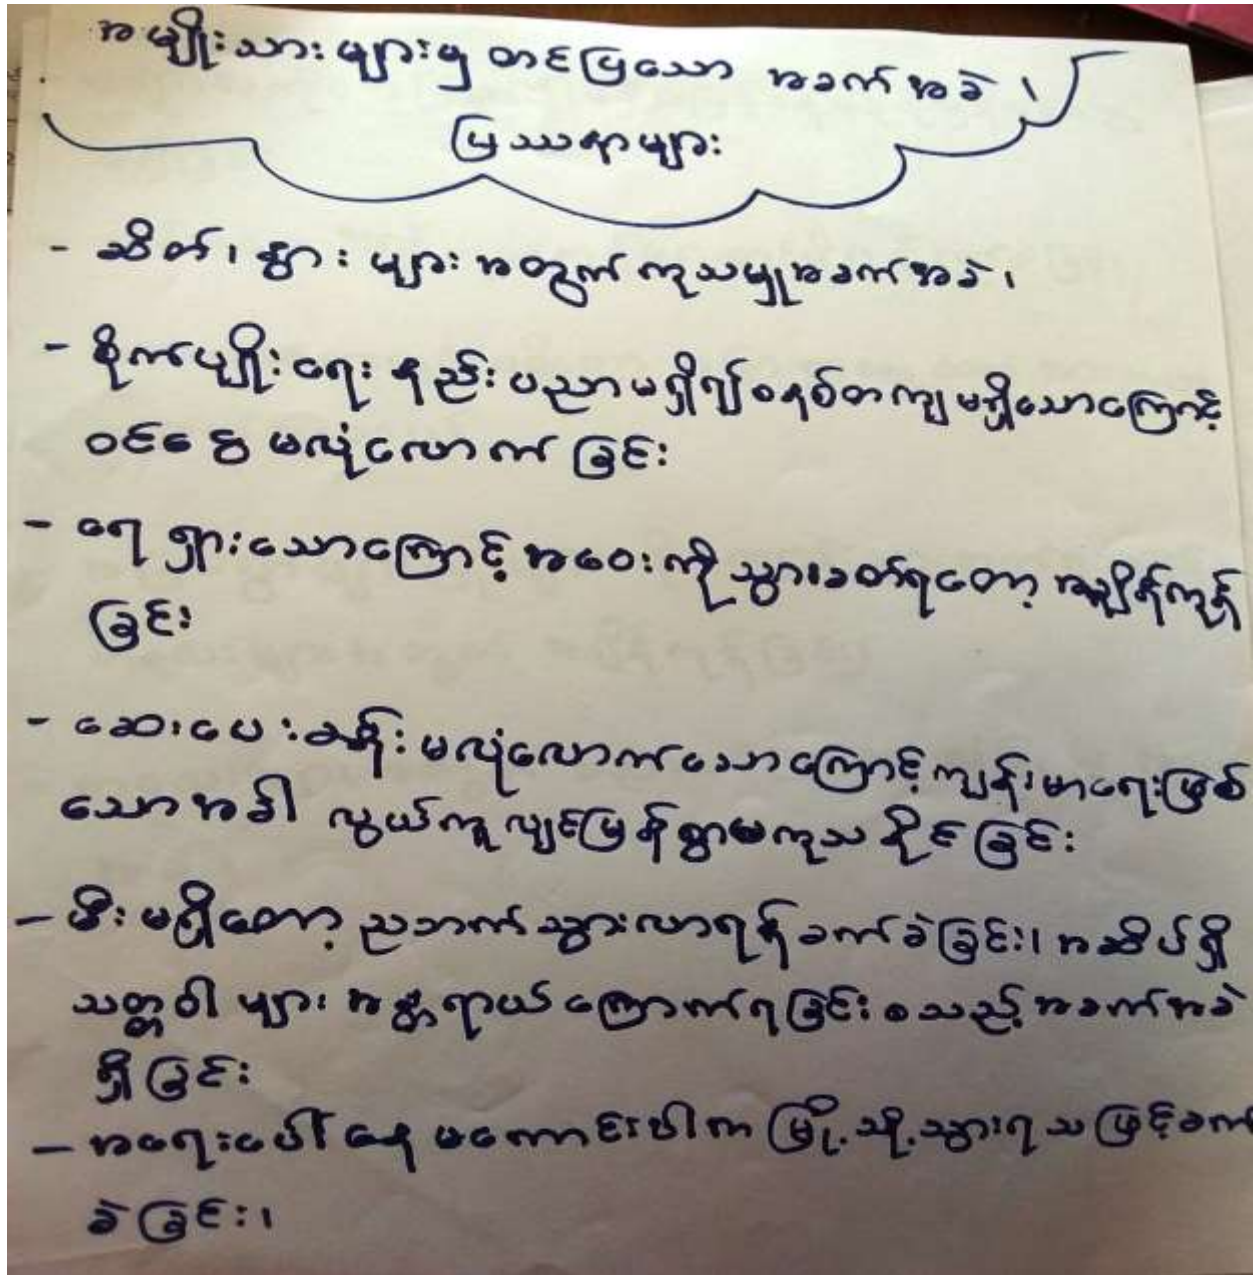 အမျိုးသားများမှ တင်ပြသော အခက်အခဲ ၊
ပြဿနာများ
- ဆိတ်၊ နွား များ အတွက် ကုသမှုအခက်အခဲ ၊
- စိုက်ပျိုးရေး နည်း ပညာ မရှိ၍ စနစ်တကျ မရှိသောကြောင့်
ဝင်ငွေ မလုံလောက် ခြင်း
- ရေ ရှားသောကြောင့် အဝေးကို သွားခတ်ရတော့ အချိန်ကုန်
ခြင်း
- ဆေးပေးခန်း မလုံလောက်သောကြောင့် ကျန်းမာရေးဖြစ်
သောအခါ လွယ်ကူလျင်မြန်စွာမကုသ နိုင် ခြင်း
- မီး မရှိတော့ ညဘက် သွားလာရန် ခက်ခဲခြင်း၊ အဆိပ်ရှိ
သတ္တဝါ များ အန္တရာယ် ကြောက်ရခြင်း စသည့် အခက်အခဲ
ရှိ ခြင်း
- အရေးပေါ် နေ မကောင်းပါက မြို့သို့သွားရသဖြင့်ခက်
ခဲခြင်း၊